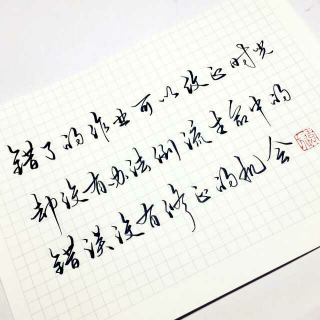 错了的作业可以改正时光
却没有办法倒流生命中的
错误没有修正的机会